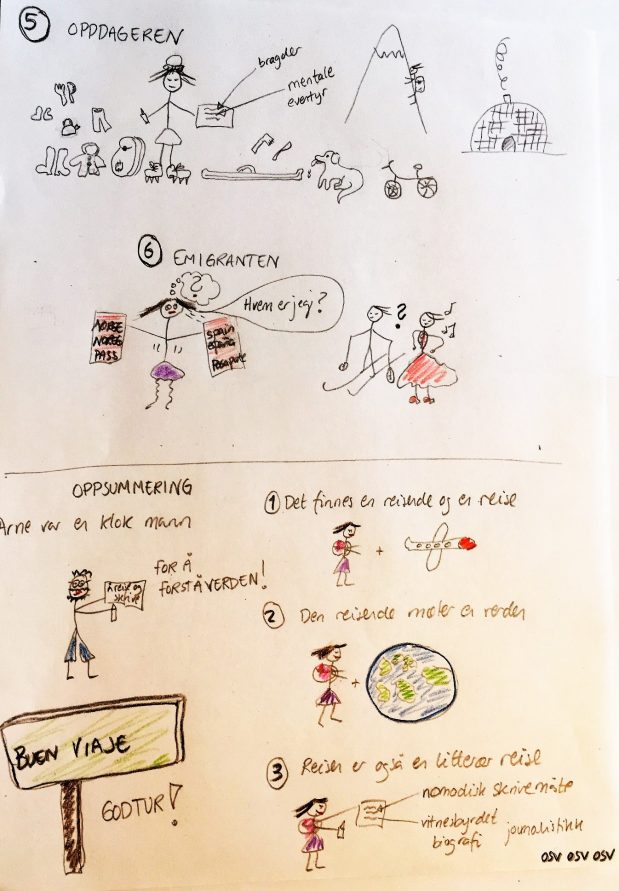 5 OPPDAGEREN
bragder
mentale
eventyr
6 EMIGRANTEN
?
Hvem er jeg?
NORGE
NOREG
PASS
SPAIN
España
Pasaporte
?
OPPSUMMERING
Arne var en klok mann
Å reise og
skrive
FOR Å
FORSTÅ VERDEN!
BUEN VIAJE
GOD TUR!
1 Det finnes en reisende og en reise
+
2 Den reisende møter en verden
+
3 Reisen er også en litterær reise
nomadisk skrivemåte
vitnesbyrdet
biografi journalistikk
OSV OSV OSV